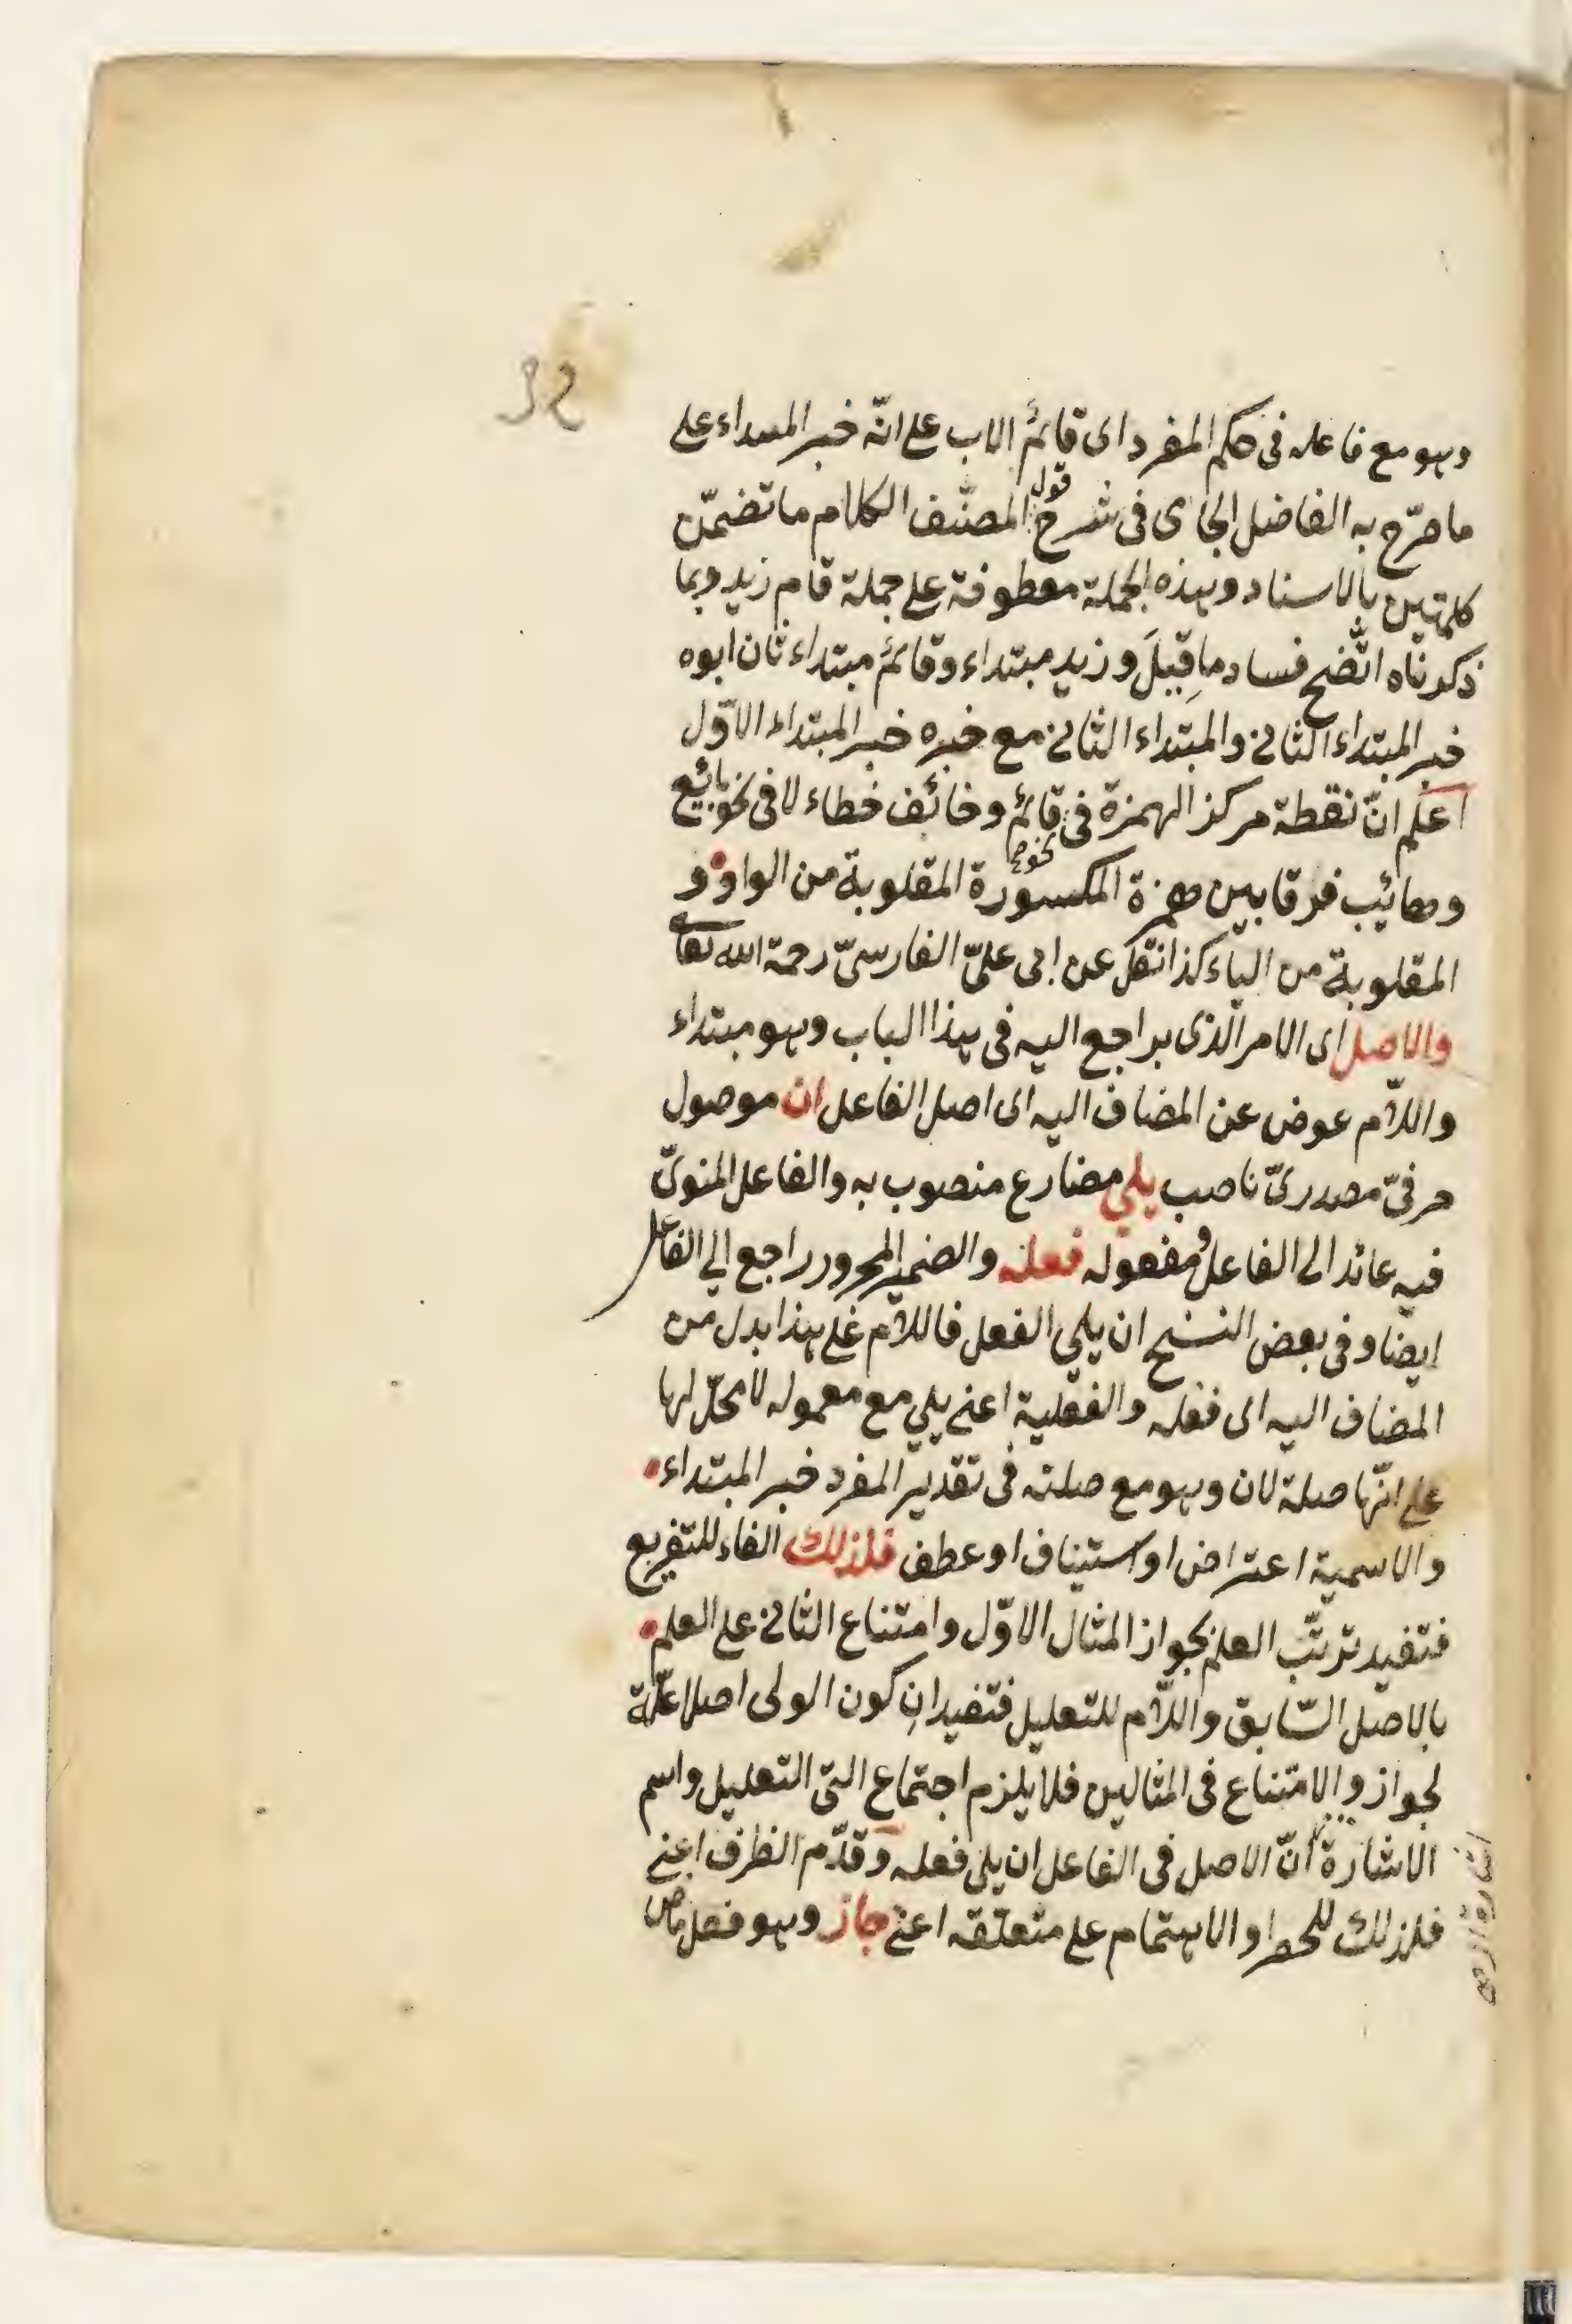 32
وهو مع فاعله فى حكم المفرد اى قائم الاب على انّه خبر المبتداء على
ما صرّح به الفاضل الجامى فى شرح قول المصنّف الكلام ما تضمّن
كلمتين بالاسناد وهذه الجملة معطوفة على جملة قام زيد وبما
ذكرناه اتّضح فساد ما قِيلَ و زيد مبتداء وقائم مبتداء ثان ابوه
خبر المبتداء الثانى والمبتداء الثانى مع خبره خبر المبتداء الاوّل
اعلم انّ نقطة مركز الهمزة فى نحو قائم وخائف خطاء لا فى نحو بائع
ومعائيب فرقا بين همزة المكسورة المقلوبة من الواو و
المقلوبة من الياء كذا نقل عن ابى علىّ الفارسىّ رحمة الله تعا
والاصل اى الامر الّذى يراجع اليه فى هذا الباب وهو مبتداء
واللاّم عوض عن المضاف اليه اى اصل الفاعل ان موصول
حرفىّ مصدرىّ ناصب يلى مضارع منصوب به والفاعل المنوىّ
فيه عائد الى الفاعل ومفعوله فعله والضمير المجرور راجع الى الفاعل
ايضا وفى بعض النسخ ان يلى الفعل فاللاّم على هذا بدل من
المضاف اليه اى فعله والفعلية اعنى يلى مع معموله لا محلّ لها
على انّها صلة لان وهو مع صلته فى تقدير المفرد خبر المبتداء
والاسمية اعتراض او استيناف او عطف فلذلك الفاء للتفريع
فتفيد ترتّب العلم بجواز المثال الاوّل وامتناع الثانى على العلم
بالاصل السّابق واللاّم للتعليل فتفيد ان كون الولى اصلا علّة
لجواز والامتناع فى المثالين فلا يلزم اجتماع التى التعليل واسم
الاشارة انّ الاصل فى الفاعل ان يلى فعله وقدّم الظرف اعنى
فلذلك للحصر او الاهتمام على متعلّقه اعنى جاز وهو فعل ماض